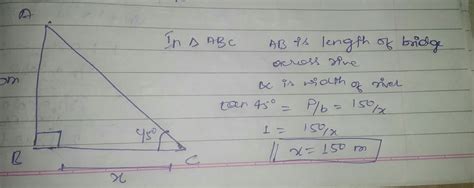 A
In Δ ABC AB is length of bridge
across
x is width of
m
45°
tan 45° = P/b = 150/x
1 = 150/x
x = 150 m
B
C
x